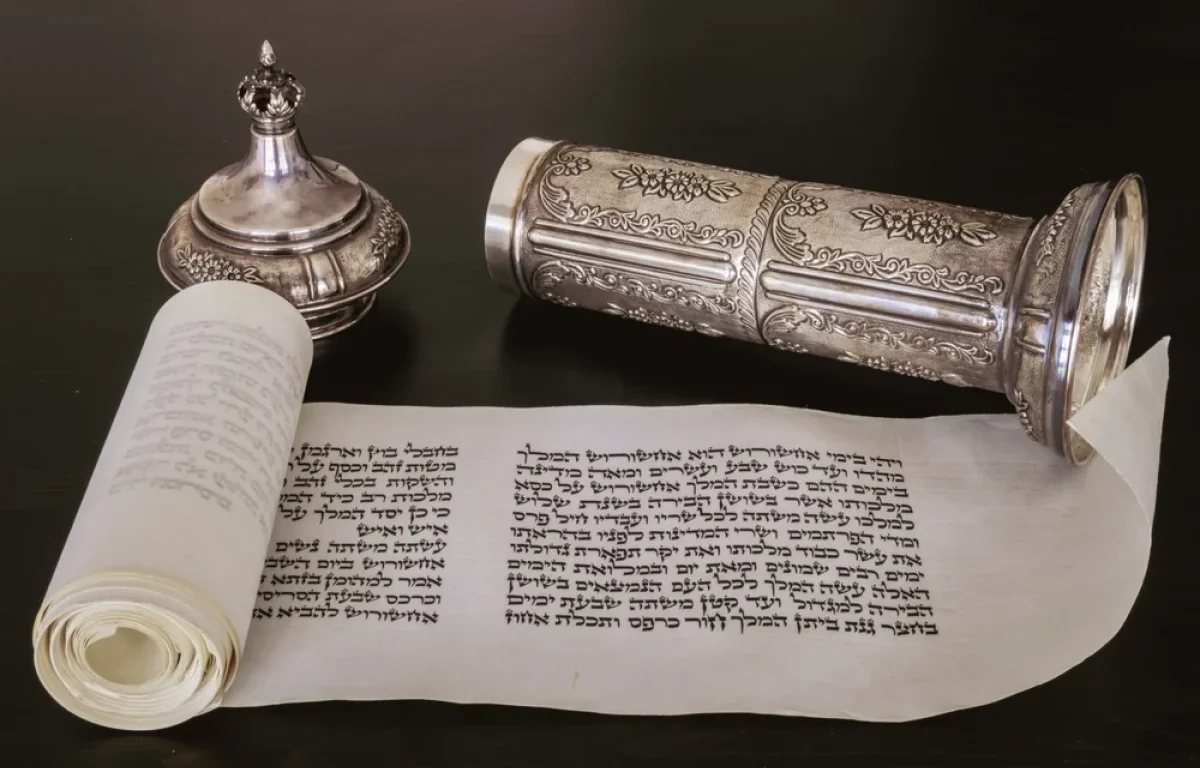 ויהי בימי אחשורוש הוא אחשורוש המלך
מהדו ועד כוש שבע ועשרים ומאה מדינה
בימים ההם כשבת המלך אחשורוש על כסא
מלכותו אשר בשושן הבירה בשנת שלוש
למלכו עשה משתה לכל שריו ועבדיו חיל פרס
ומדי הפרתמים ושרי המדינות לפניו בהראתו
את עשר כבוד מלכותו ואת יקר תפארת גדולתו
ימים רבים שמונים ומאת יום ובמלואת הימים
האלה עשה המלך לכל העם הנמצאים בשושן
הבירה למגדול ועד קטן משתה שבעת ימים
בחצר גנת ביתן המלך חור כרפס ותכלת אחוז
בחבלי בוץ וארגמן
מטות זהב וכסף על
והשקות בכלי זהב
מלכות רב כיד
כי כן יסד המלך על
איש ואיש
עשתה משתה נשים
אחשורוש ביום
אמר למהומן בזתא
וכרכס שבעת
אחשורוש להביא